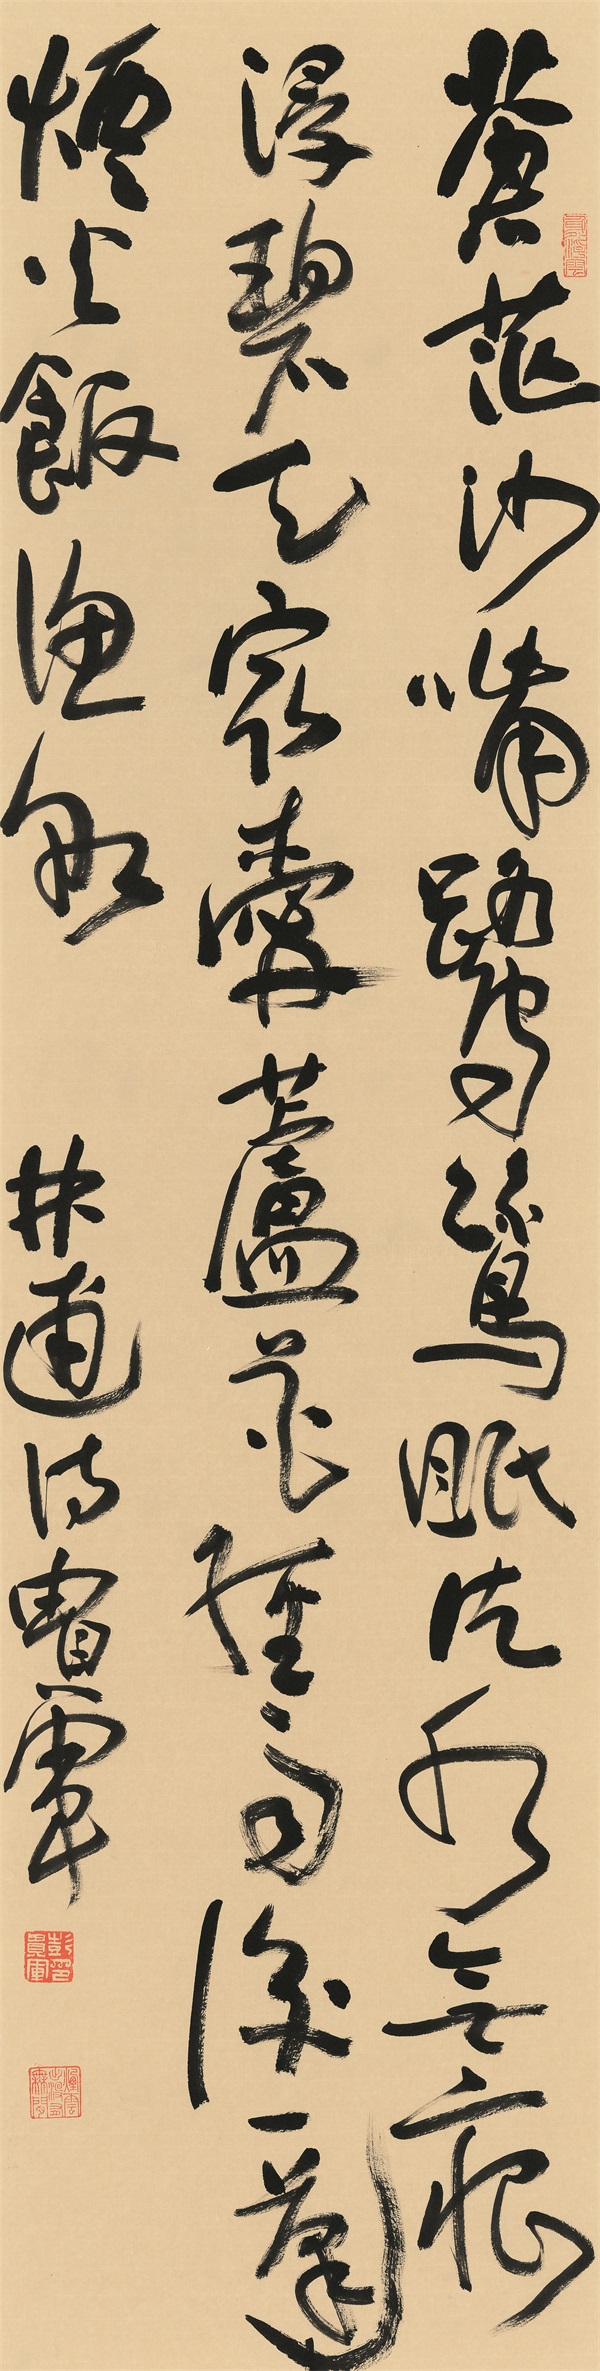 蒼茫沙嘴鷺鷥眠片水無痕
浸碧天最愛蘆花經雨後一蓬
煙火飯漁船
林逋詩貴軍
彭貴軍印